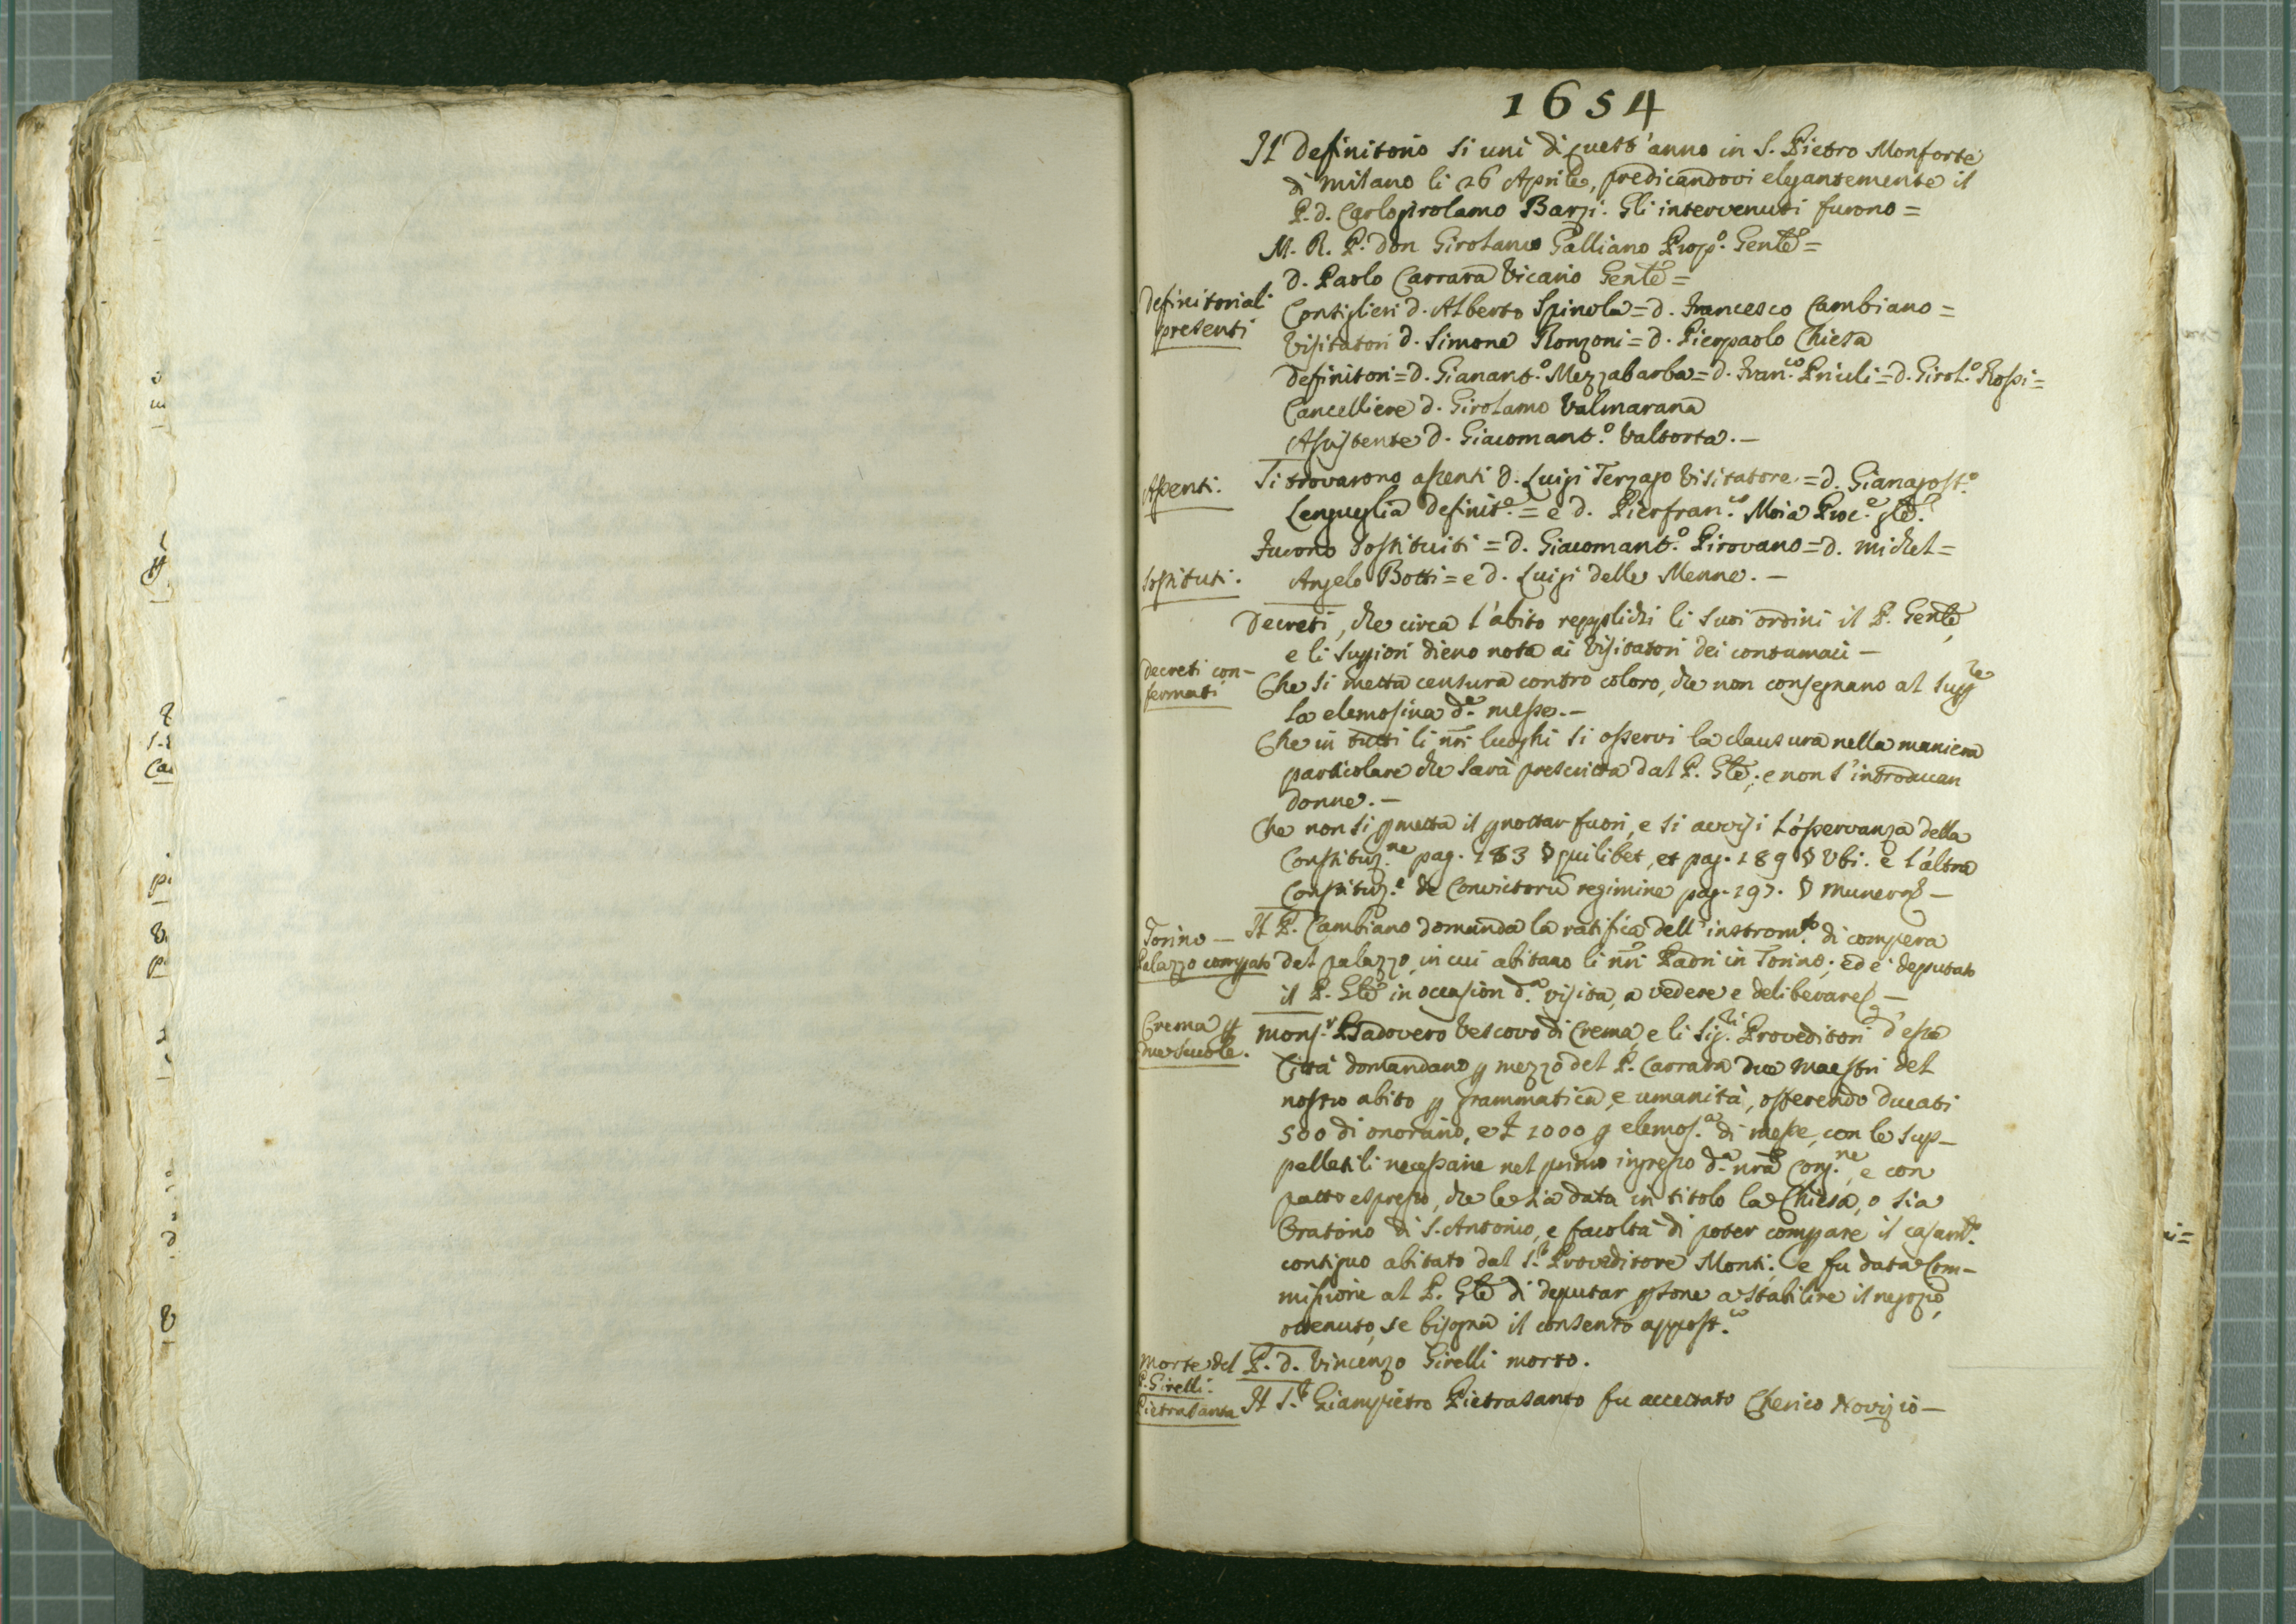 1654
Il Definitorio si unì di quest'anno in S. Pietro Monforte
di Milano li 26 Aprile, predicandovi elegantemente il
P. d. Carlogirolamo Barzi. Gli intervenuti furono =
M. R. P. Don Girolamo Galliano Prop.º Genle =
D. Paolo Carrara Vicario Genle =
Definitoriali
presenti
Consiglieri d. Alberto Spinola = d. Francesco Cambiano =
Visitatori d. Simone Ronzoni = d. Pierpaolo Chiesa
Definitori = d. Gianant.º Mezzabarba = d. Fran.co Priuli = d. Girol.º Rossi =
Cancelliere d. Girolamo Valmarana
Assistente d. Giacomant.º Valtorta. —
Assenti.
Si trovarono assenti d. Luigi Terzago Visitatore = d. Gianagost.º
Lenguglia Definit.e = e d. Pierfran.co Moia Proc.e gle.
Furono sostituiti = d. Giacomant.º Pirovano = d. Michel =
Sostituti.
Angelo Botti = e d. Luigi delle Menne. —
Decreti, che circa l'abito repplichi li suoi ordini il P. Genle,
e li Suppiori dieno nota ai Visitatori dei contumaci —
Decreti con-
fermati
Che si metta censura contro coloro, che non consegnano al Supp.re
la elemosina d.e messe. —
Che in tutti li nri luoghi si osservi la clausura nella maniera
particolare che sarà prescritta dal P. Gle; e non s'introducan
donne. —
Che non si pmetta il pnottar fuori, e si avvisi l'osservanza della
Constituz.ne pag. 183 § quilibet, et pag. 189 § Ubi. e l'altra
Constituz.e de Convictorũ regimine pag. 197. § —
Torino —
Palazzo comprato
Il P. Cambiano domanda la ratifica dell'instrom.to di compera
del palazzo, in cui abitano li nri Padri in Torino; ed è deputato
il P. Gle in occasion d.a visita, a vedere e deliberare —
Crema p
due scuole.
Mons.r Badovero Vescovo di Crema, e li Sig.ri Proveditori d'essa
Città domandano p mezzo del P. Carrara due Maestri del
nostro abito p grammatica, e umanità, offerendo ducati
500 di onorario, e £ 1000 p elemos.a di messe, con le sup-
pelletili necessarie nel primo ingresso d.a nra Cong.ne, e con
patto espresso, che le sia data in titolo la Chiesa, o sia
Oratorio di S. Antonio, e facoltà di poter comprare il casam.to
contiguo abitato dal S.r Proveditore Monti; e fu data Com-
missione al P. Gle di deputar psone a stabilire il negozio,
ottenuto, se bisogna il consenso appost.co
Morte del
P. Girelli.
P. d. Vincenzo Girelli morto.
Pietrasanta
Il S.r Giampietro Pietrasanto fu accettato Cherico Novizio —